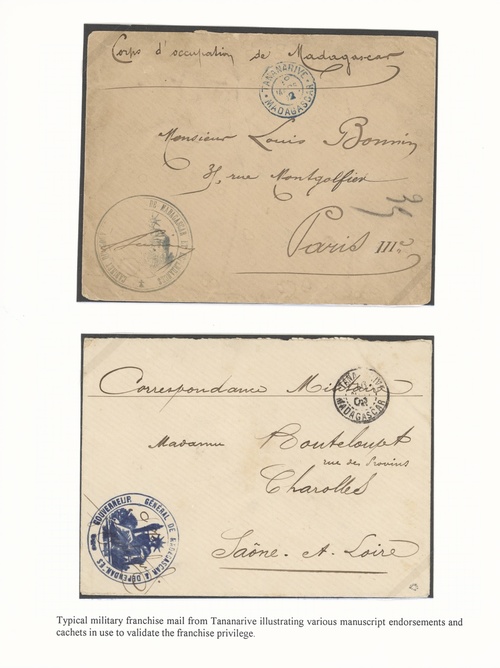 Corps d'occupation de Madagascar
TANANARIVE
MADAGASCAR
Monsieur Louis Bonnin
35, rue Montgolfier
Paris IIIe
Correspondance Militaire
MADAGASCAR
02
Madame Bouteloupt
rue des Provins
Charolles
Saône-et-Loire
GOUVERNEUR GÉNÉRAL DE MADAGASCAR & DÉPENDANCES
Typical military franchise mail from Tananarive illustrating various manuscript endorsements and
cachets in use to validate the franchise privilege.